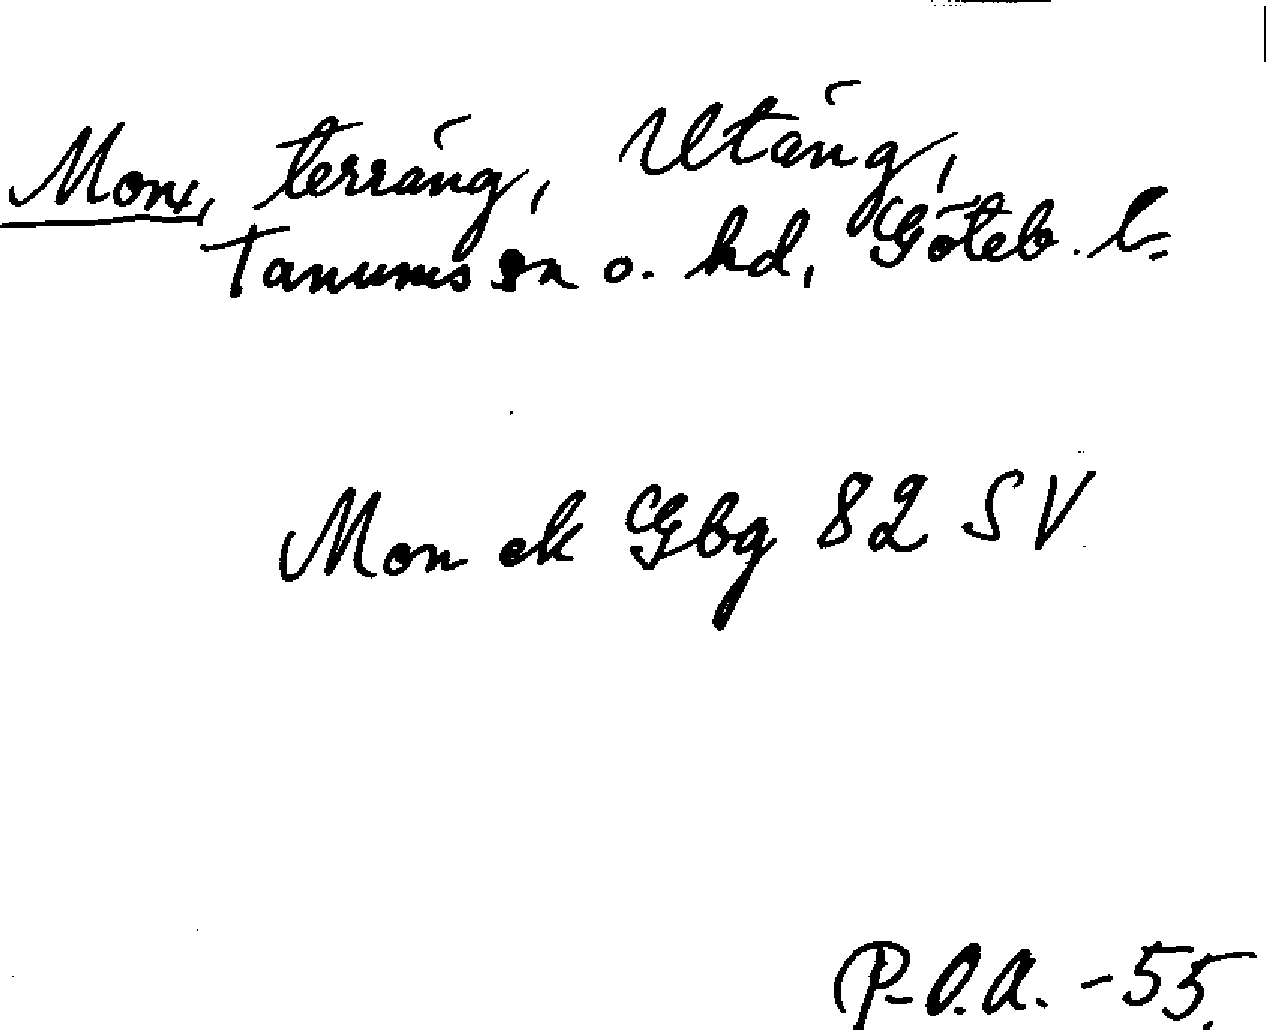 Mon, terräng, Utäng,
Tanums sn o. hd, Göteb. l.
Mon ek Gbg 82 SV
P.O.A. -55.